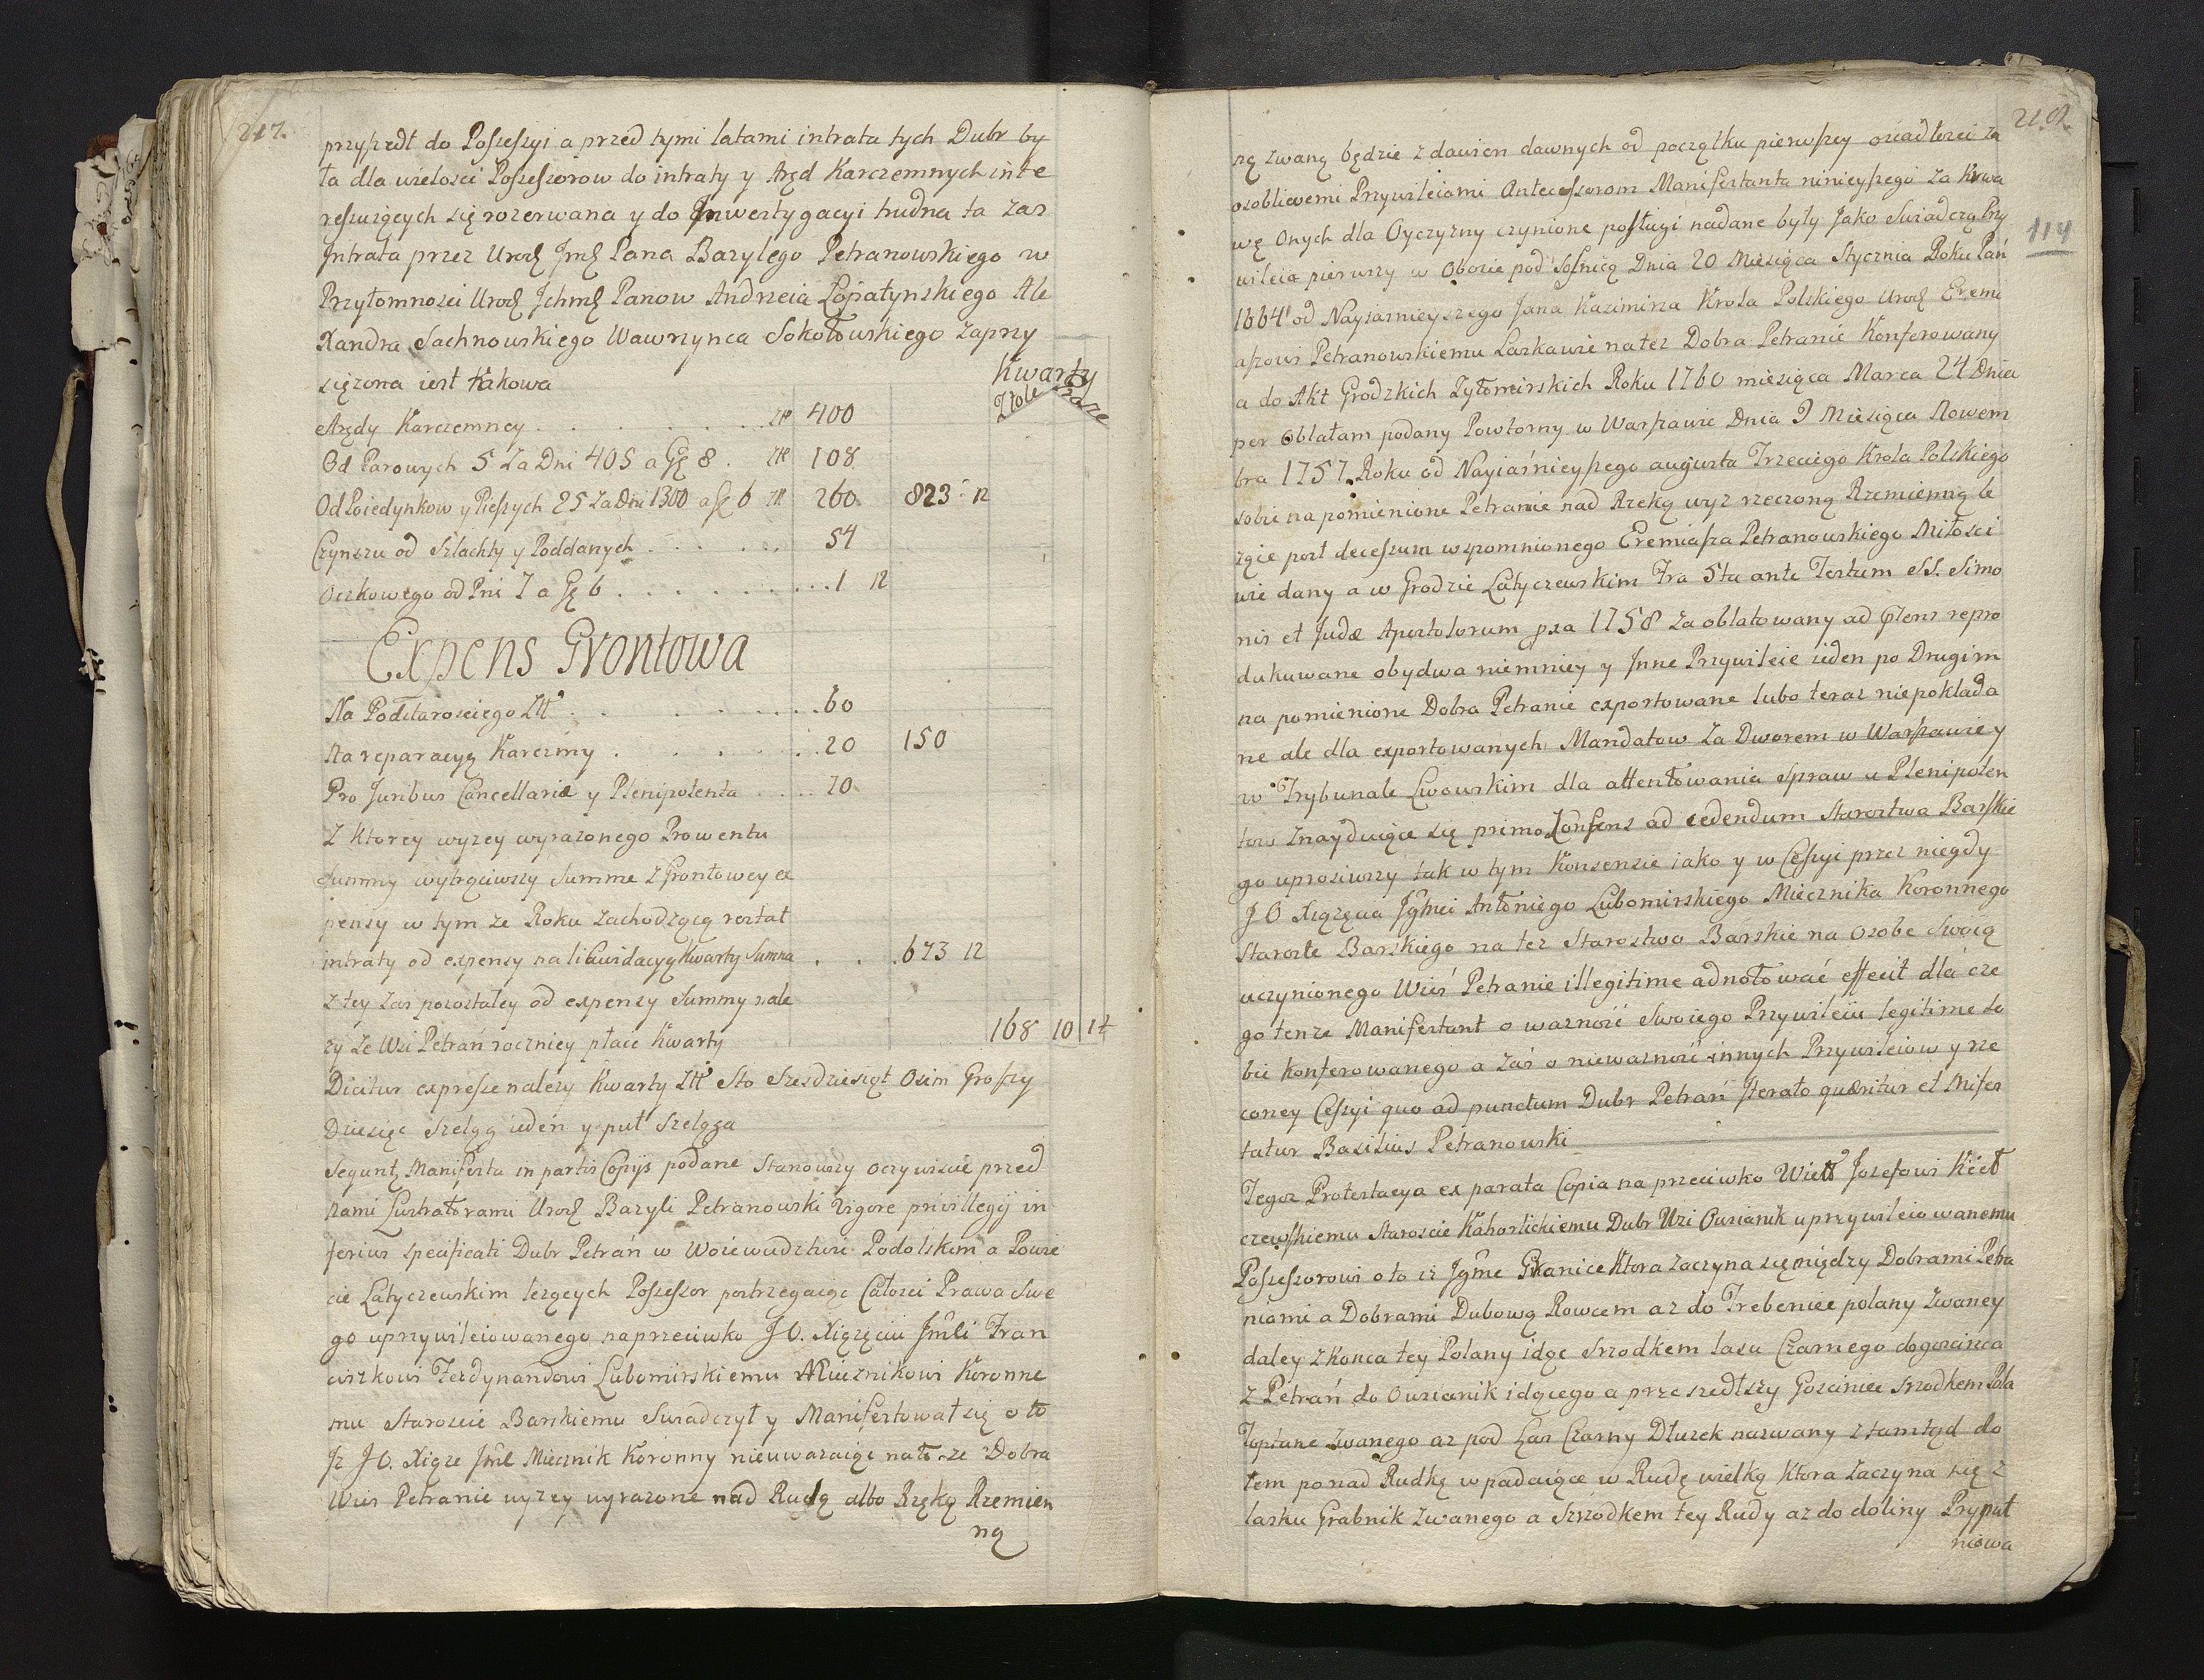 217.
przyszedł do Possessyi a przed tymi latami intrata tych Dubr by
ła dla wielosci Possessorow do intraty y Aręd Karczemnych inte
ressuiących się rozerwana y do Inwestygacyi trudna ta zas
Intrata przez Urodz Jmć Pana Bazylego Petranowskiego w
Przytomnosci Urodz Ichmć Panow Andrzeia Łopatynskiego Ale
Xandra Sachnowskiego Wawrzynca Sokołowskiego zaprzy
siężona iest takowa
Kwarty
Złote Szare
Arędy Karczemney . . . Złł 400
Od Parowych 5 za Dni 405 a Gę 8 . Złł 108
Od Poiedynkow y Pieszych 25 za Dni 1300 a Gę 6 Złł 260. 823 : 12
Czynszu od Szlachty y Poddanych . . . . 54
Oczkowego od Pni 7 a Gę 6 . . . . 1 12
Expens Grontowa
Na Podstarosciego Złł . . . . 60
Na reparacyą Karczmy . . . . 20 150
Pro Juribus Cancellariæ y Plenipotenta . . . . 70
Z ktorey wyzey wyrazonego Prowentu
Summy wytrąciwszy Summe z Grontowey ex
pensy w tym ze Roku zachodzącą restat
intraty od expensy na likwidacyą Kwarty Summa . . . 673 12
z tey zas pozostałey od expensy Summy nale
zy ze Wsi Petrań roczniey płace Kwarty 168 10 1 ½
Dicitur expresse nalezy Kwarty Złł Sto Szesdziesiąt Osim Groszy
Dziesięc Szeląg ieden y puł Szelęga
Sequntʒ Manifesta in partis Copijs podane Stanowszy oczywiscie przed
nami Lustratorami Urodz Bazyli Petranowski Vigore privillegij in
ferius specificati Dubr Petrań w Woiewudztwie Podolskim a Powie
cie Latyczewskim lezących Possessor postrzegaiąc Całosci Prawa Swe
go uprzywileiowanego naprzeciwko J O. Xiązęciu Jmći Fran
ciszkowi Ferdynandowi Lubomirskiemu Miecznikowi Koronne
mu Staroscie Barskiemu Swiadczył y Manifestował się o to
Iz J O. Xiąze Jmć Miecznik Koronny nieuwazaiąc na to ze Dobra
Wies Petranie wyzey wyrazone nad Rudą albo Rzęką Rzemien
ną
218.
114
ną zwaną będzie z dawien dawnych od początku pierwszey osiadłosci za
osobliwemi Przywileiami Antecessorom Manifestanta ninieyszego za Krwa
wę Onych dla Oyczyzny czynione posługi nadane były Jako Swiadczą Przy
wileia pierwszy w Obozie pod Sosnicą Dnia 20 Miesiąca Stycznia Roku Pań
1664 od Nayiasnieyszego Jana Kazimirza Krola Polskiego Urodz Eremi
aszowi Petranowskiemu Łaskawie na tez Dobra Petranie Konferowany
a do Akt Grodzkich Zytomirskich Roku 1760 miesiąca Marca 24 Dnia
per Oblatam podany Powtorny w Warszawie Dnia 9 Miesiąca Nowem
bra 1757 Roku od Nayiaśnieyszego augusta Trzeciego Krola Polskiego
sobie na pomienione Petranie nad Rzeką wyz rzeczoną Rzemienną le
zące post decessum wspomnionego Eremiasza Petranowskiego Miłosci
wie dany a w Grodzie Latyczewskim Fra 5ta ante Festum SS. Simo
nis et Judæ Apostolorum pxa 1758 za oblatowany ad pfens repro
dukuwane obydwa niemniey y Inne Przywileie ieden po Drugim
na pomienione Dobra Petranie exportowane lubo teraz niepokłada
ne ale dla exportowanych Mandatow za Dworem w Warszawie y
w Trybunale Lwowskim dla attentowania Spraw u Plenipoten
tow znayduiące się primo Konsens ad cedendum Starostwa Barskie
go uprosiwszy tak w tym Konsensie iako y w Cessyi przez niegdy
J O Xiązęcia Jgmći Antoniego Lubomirskiego Miecznika Koronnego
Staroste Barskiego na tez Starostwo Barskie na osobe Swoią
uczynionego Wieś Petranie illegitime adnotować effecit dla cze
go tenze Manifestant o wazność Swoiego Przywileiu legitime so
bie konferowanego a zaś o niewazność innych Przywileiow y rze
coney Cessyi quo ad punctum Dubr Petrań Iterato quæritur et Mifes
tatur Basilius Petranowski
Tegoz Protestacya ex parata Copia na przeciwko Wiel Jozefowi Kiel
czewskiemu Staroscie Kahorlickiemu Dubr Wsi Owsianik uprzywileiowanemu
Possessorowi o to iz Jgmć Granice ktora zaczyna się między Dobrami Petra
niami a Dobrami Dubową Rowcem az do Trebeniec polany zwaney
daley z konca tey Polany idąc srzodkem lasu Czarnego do gościnca
z Petrań do Owsianik idącego a prze szedłszy Gosciniec srzodkem Pola
Toptane zwanego az pod Las Czarny Dłuzek nazwany z tamtąd do
tem ponad Rudkę wpadaiące w Rudę wielką ktora zaczyna się z
lasku Grabnik zwanego a Srzodkem tey Rudy az do doliny Pryput
niowa